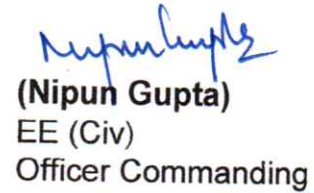 Nipun Gupta
(Nipun Gupta)
EE (Civ)
Officer Commanding